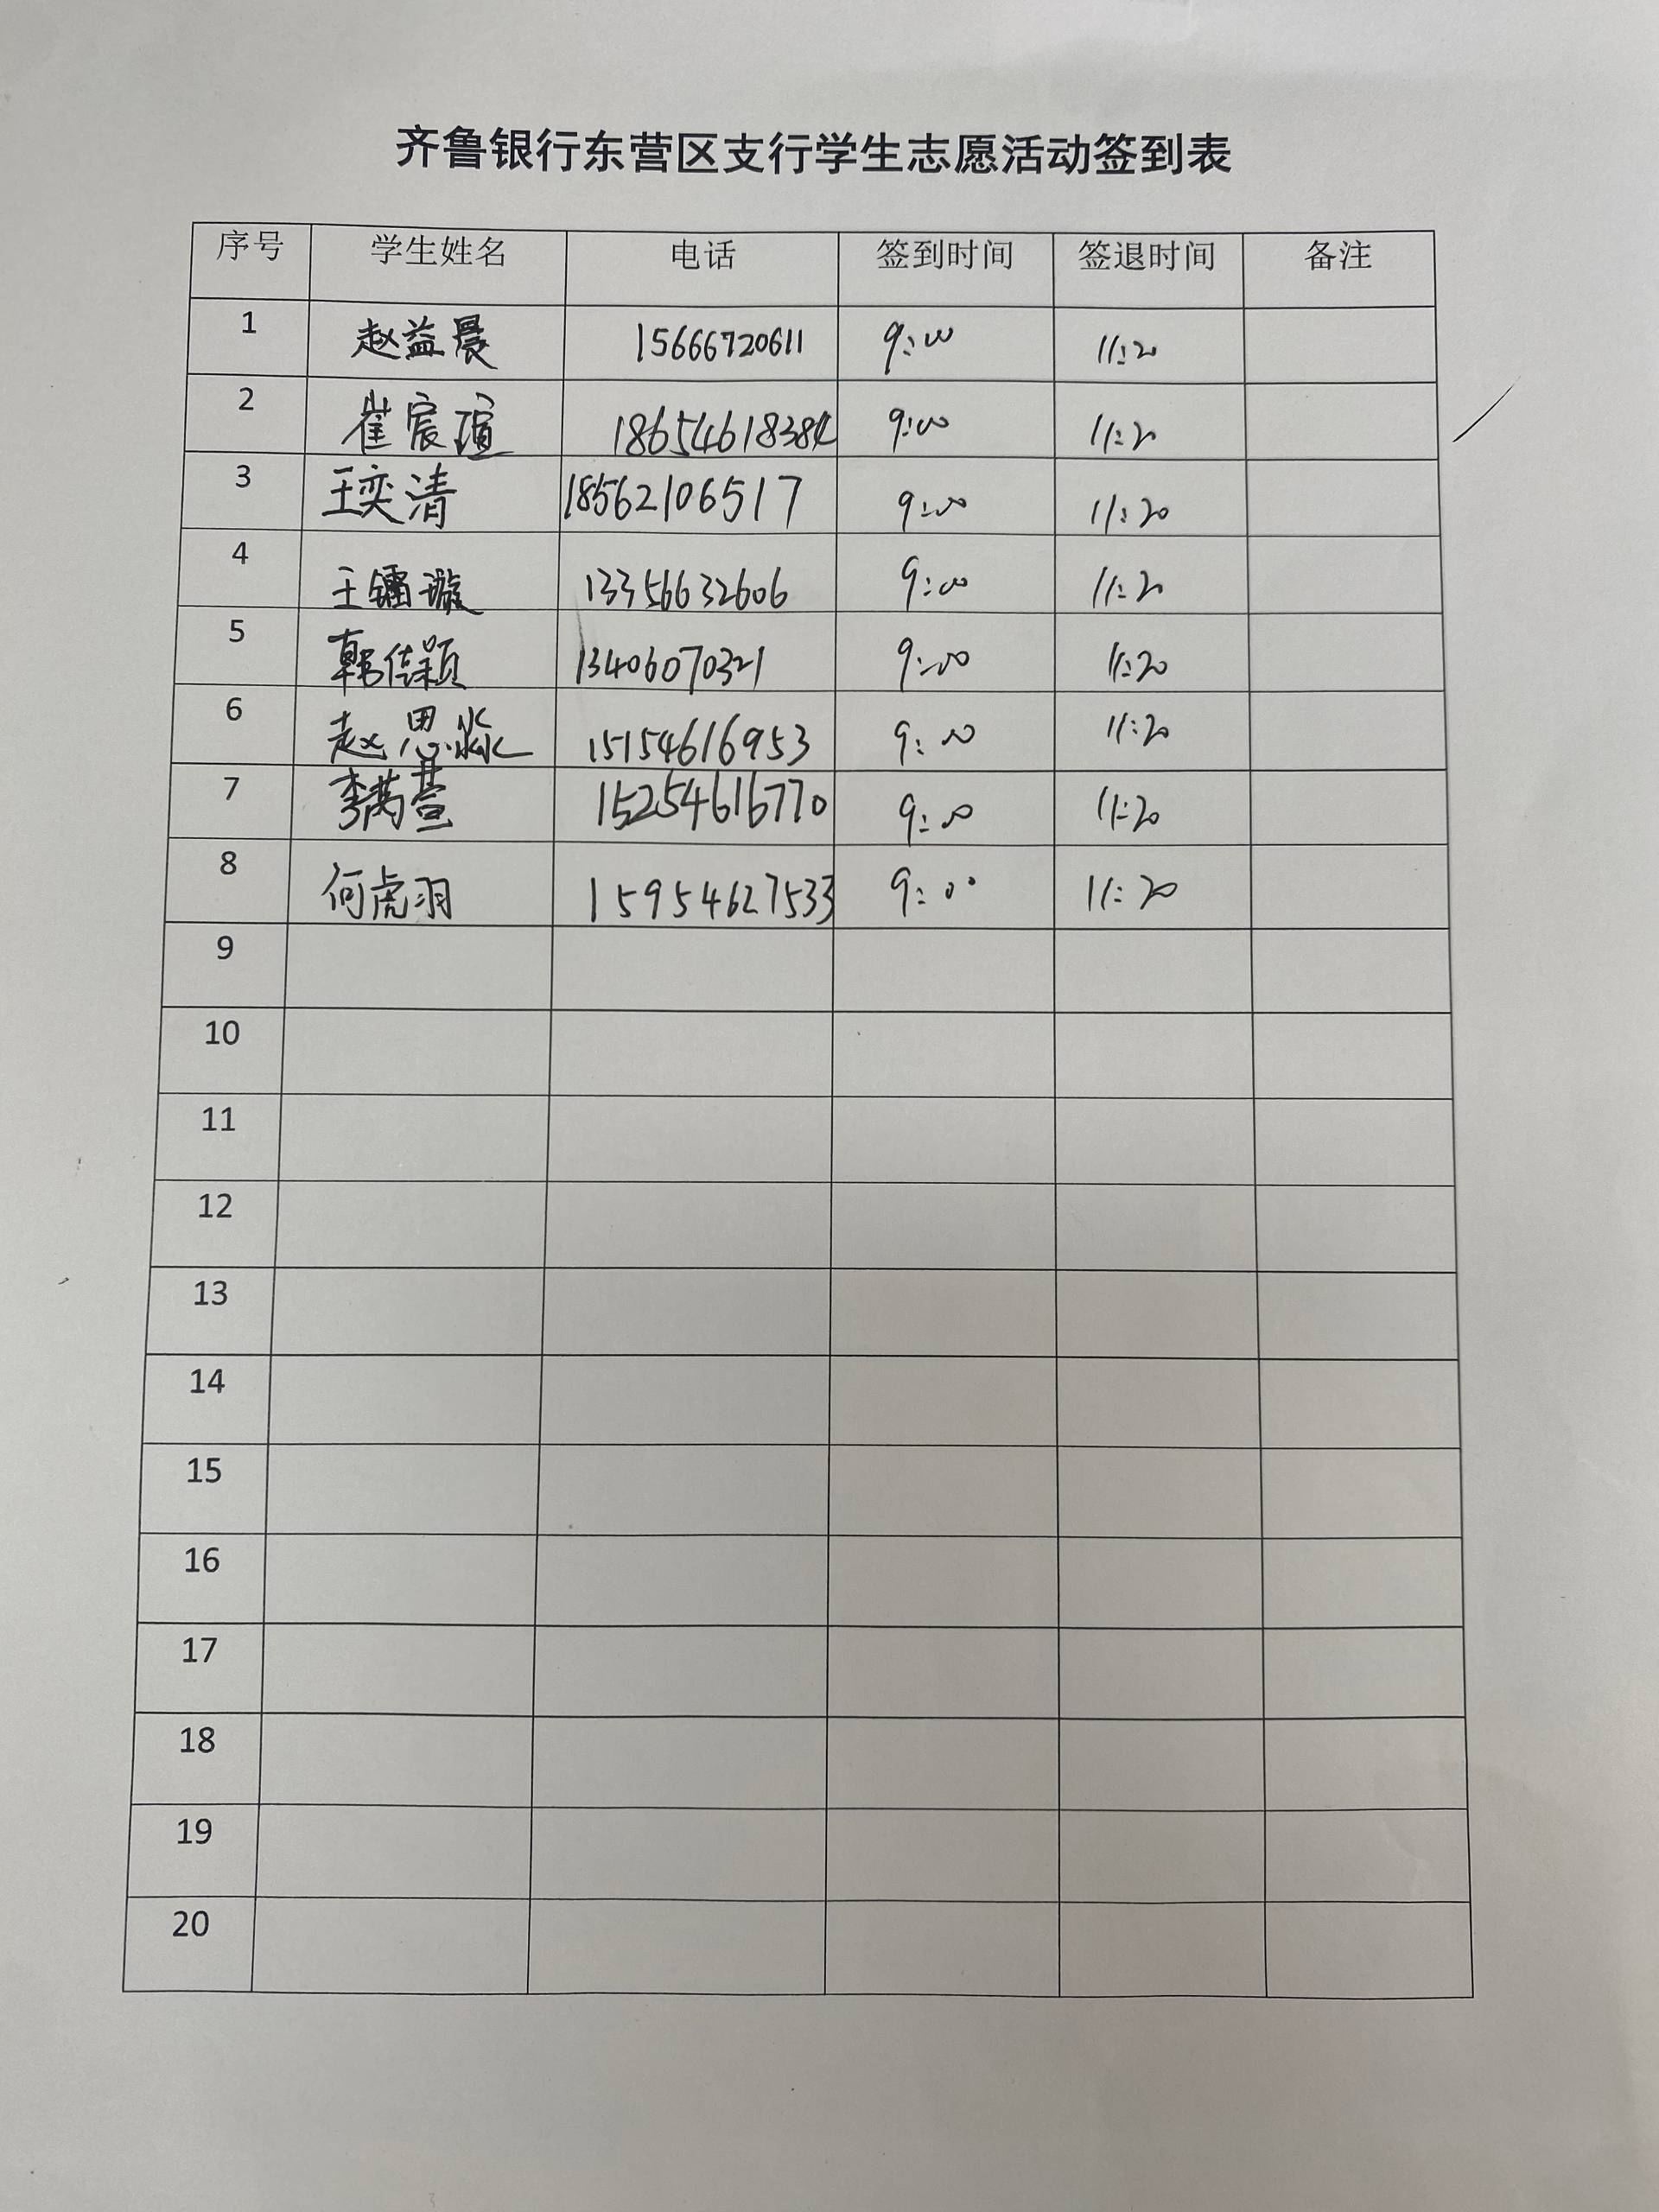 齐鲁银行东营区支行学生志愿活动签到表
序号 学生姓名 电话 签到时间 签退时间 备注
1 赵益晨 15666720611 9:00 11:20
2 崔宸瑄 18654618384 9:00 11:20
3 王奕清 18562106517 9:00 11:20
4 王镭璇 13356632606 9:00 11:20
5 韩佳颖 13406070321 9:00 11:20
6 赵思淼 15154616953 9:00 11:20
7 李芮萱 15254616770 9:00 11:20
8 何虎羽 15954627533 9:00 11:20
9
10
11
12
13
14
15
16
17
18
19
20